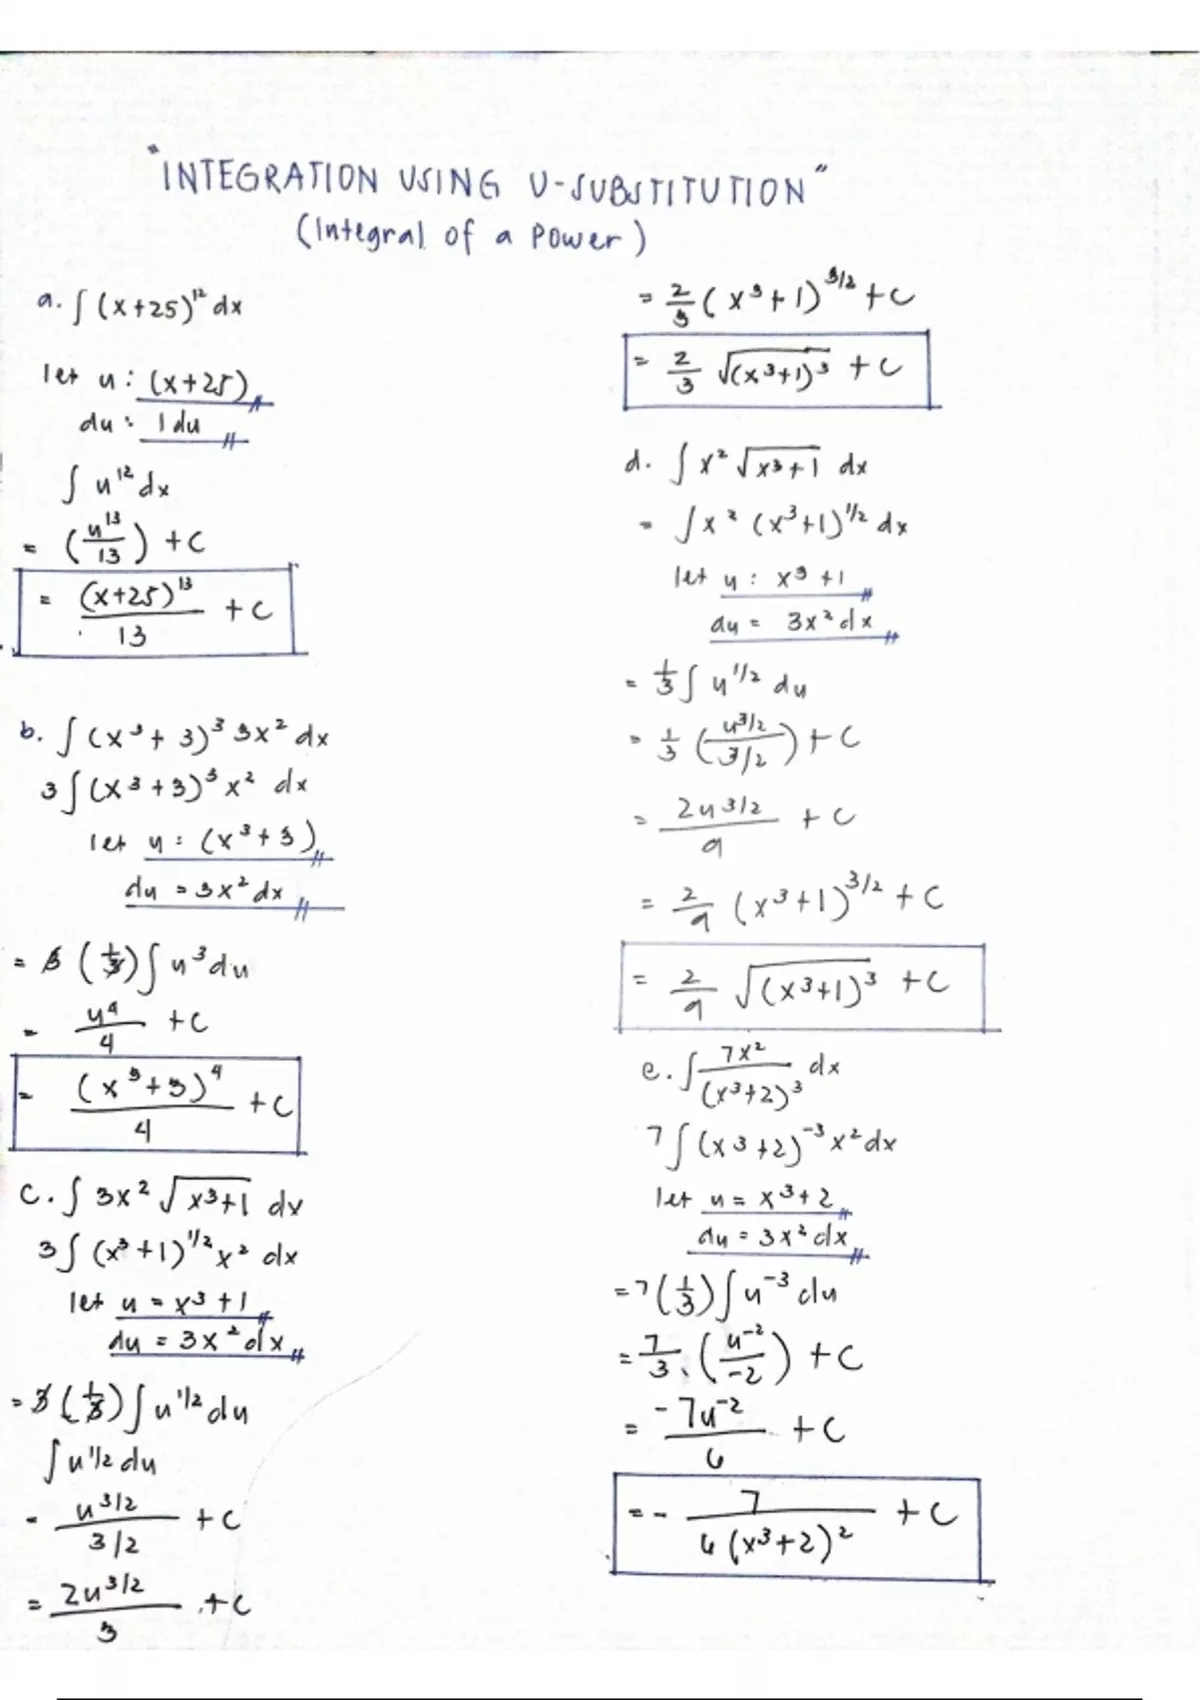 "INTEGRATION USING U-SUBSTITUTION"
(Integral of a Power)
a. ∫ (x+25)¹² dx
let u : (x+25)
du : 1 du
∫ u¹² dx
= (u¹³/13) + C
= (x+25)¹³/13 + C
b. ∫ (x³+3)³ 3x² dx
3 ∫ (x³+3)³ x² dx
let u : (x³+3)
du = 3x² dx
= 3 (1/3) ∫ u³ du
= u⁴/4 + C
= (x³+3)⁴/4 + C
c. ∫ 3x² √(x³+1) dx
3 ∫ (x³+1)^1/2 x² dx
let u = x³+1
du = 3x² dx
= 3 (1/3) ∫ u^1/2 du
∫ u^1/2 du
= u^3/2 / 3/2 + C
= 2u^3/2 / 3 + C
= 2/3 (x³+1)^3/2 + C
= 2/3 √(x³+1)³ + C
d. ∫ x² √(x³+1) dx
= ∫ x² (x³+1)^1/2 dx
let u : x³+1
du = 3x² dx
= 1/3 ∫ u^1/2 du
= 1/3 (u^3/2 / 3/2) + C
= 2u^3/2 / 9 + C
= 2/9 (x³+1)^3/2 + C
= 2/9 √(x³+1)³ + C
e. ∫ 7x²/(x³+2)³ dx
7 ∫ (x³+2)⁻³ x² dx
let u = x³+2
du = 3x² dx
= 7 (1/3) ∫ u⁻³ du
= 7/3 . (u⁻²/-2) + C
= -7u⁻²/6 + C
= - 7/6(x³+2)² + C